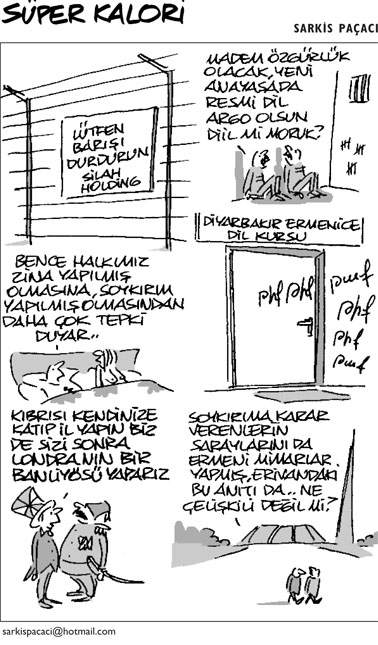 SÜPER KALORİ
SARKİS PAÇACI
LÜTFEN
BARIŞI
DURDURUN
SİLAH
HOLDİNG
MADEM ÖZGÜRLÜK
OLACAK, YENİ
ANAYASADA
RESMİ DİL
ARGO OLSUN
DİİL Mİ MORUK?
BENCE HALKIMIZ
ZİNA YAPILMIŞ
OLMASINA, SOYKIRIM
YAPILMIŞ OLMASINDAN
DAHA ÇOK TEPKİ
DUYAR..
DİYARBAKIR ERMENİCE
DİL KURSU
KIBRISI KENDİNİZE
KATIP İL YAPIN BİZ
DE SİZİ SONRA
LONDRA'NIN BİR
BANLİYÖSÜ YAPARIZ
SOYKIRIMA KARAR
VERENLERİN
SARAYLARINI DA
ERMENİ MİMARLAR
YAPMIŞ, ERİVANDAKİ
BU ANITI DA.. NE
ÇELİŞKİLİ DEĞİL Mİ?
sarkispacaci@hotmail.com